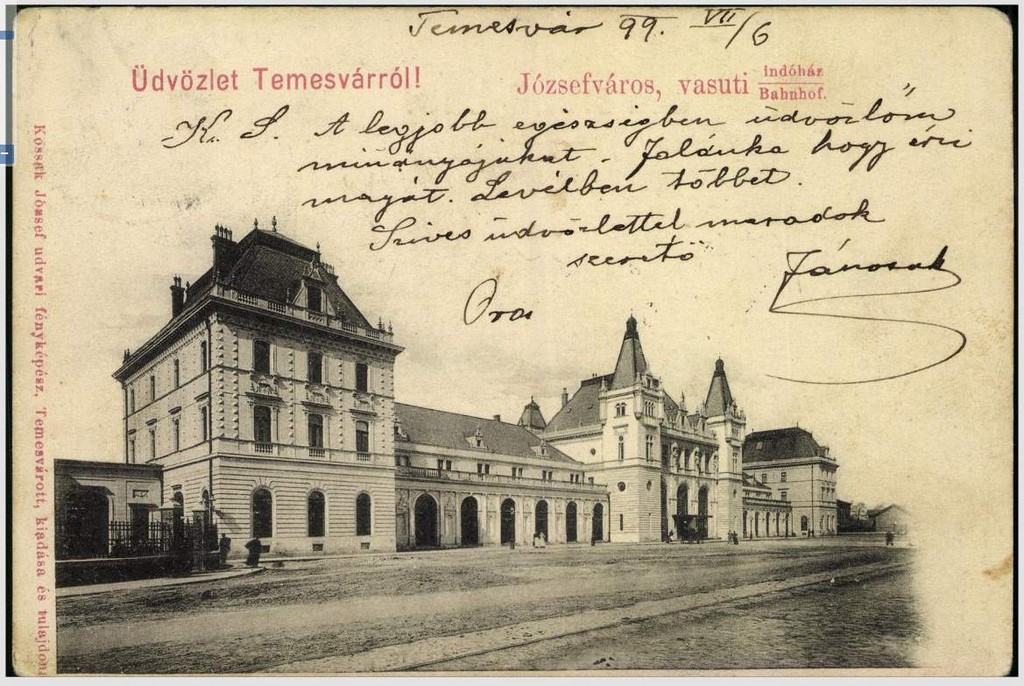 Temesvár 99. VII/6
Üdvözlet Temesvárról!
Józsefváros, vasuti indóház
Bahnhof.
K. S. A legjobb egészségben üdvözlöm
minnyájukat. Jolánka hogy érzi
magát. Levélben többet.
Szives üdvözlettel maradok
szerető
Jánosuk
Kossak József udvari fényképész, Temesvárott, kiadása és tulajdona